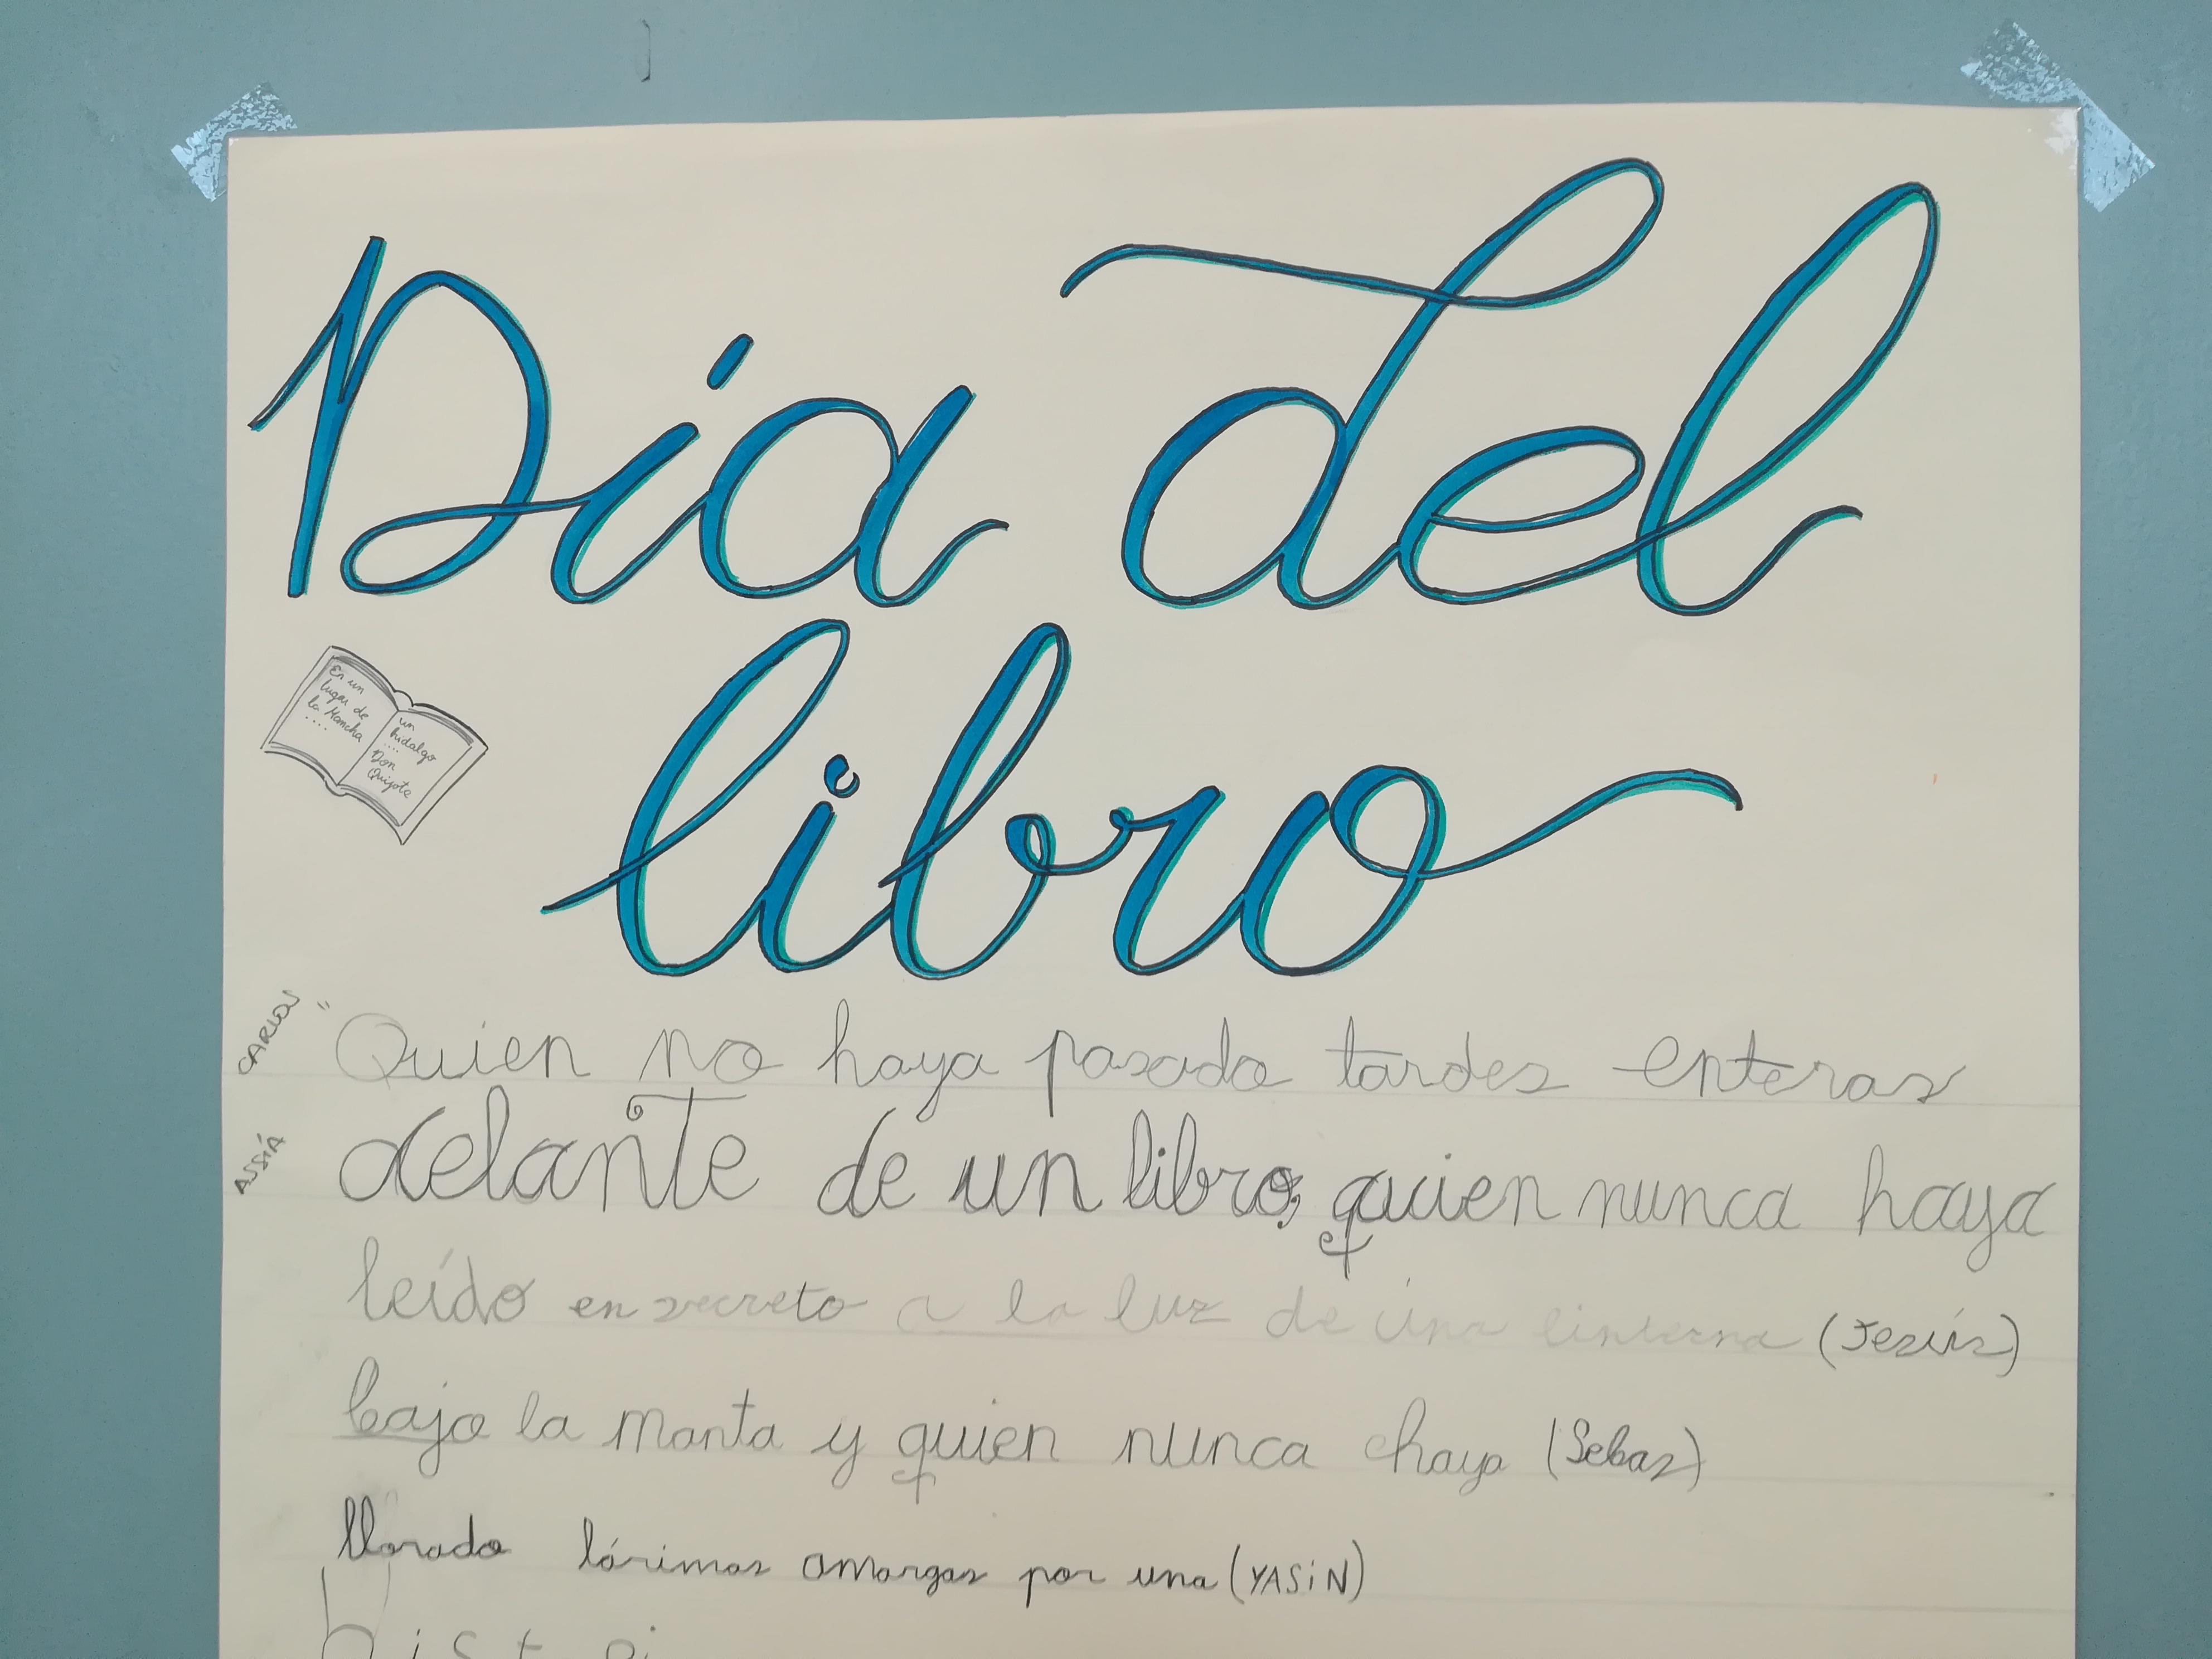 Dia del
libro
En un
lugar de
la Mancha
....
un
hidalgo
....
Don
Quijote
CARLOS
"Quien no haya pasado tardes enteras
delante de un libro, quien nunca haya
leído en secreto a la luz de una linterna (Jesús)
bajo la manta y quien nunca haya (Sebas)
llorado lárimas amargas por una (YASiN)